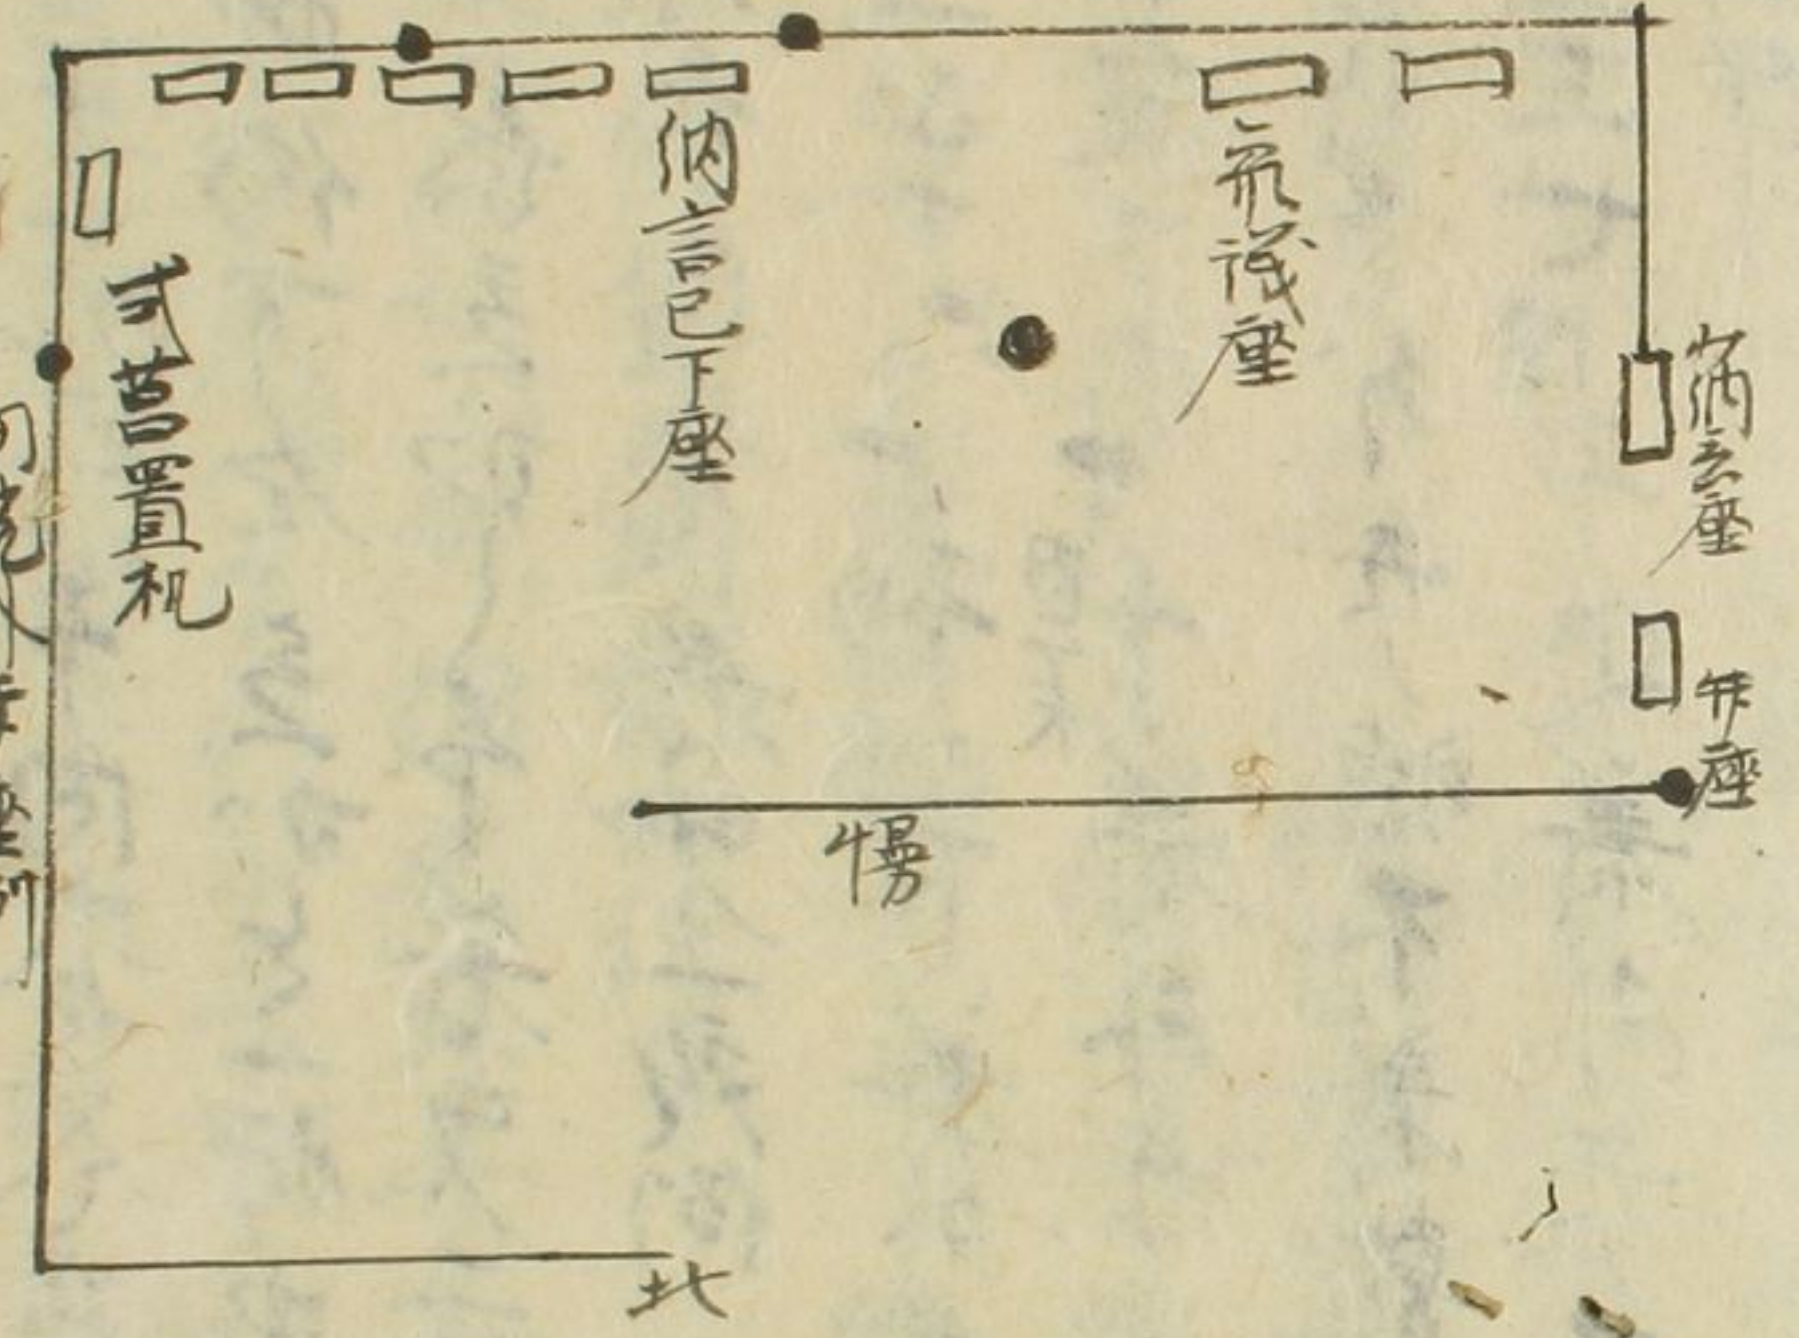 少納言座
弁座
参議座
納言已下座
式莒置机
幔
北